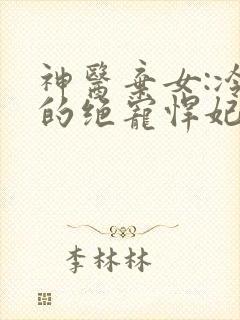 神醫棄女:冷
的绝寵悍妃
李林林